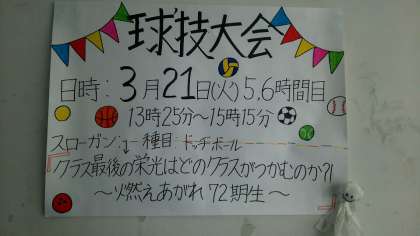 球技大会
日時:3月21日(火)5,6時間目
13時25分~15時15分
スローガン:↴ 種目 ドッチボール
クラス最後の栄光はどのクラスがつかむのか?!
~燃えあがれ72期生~